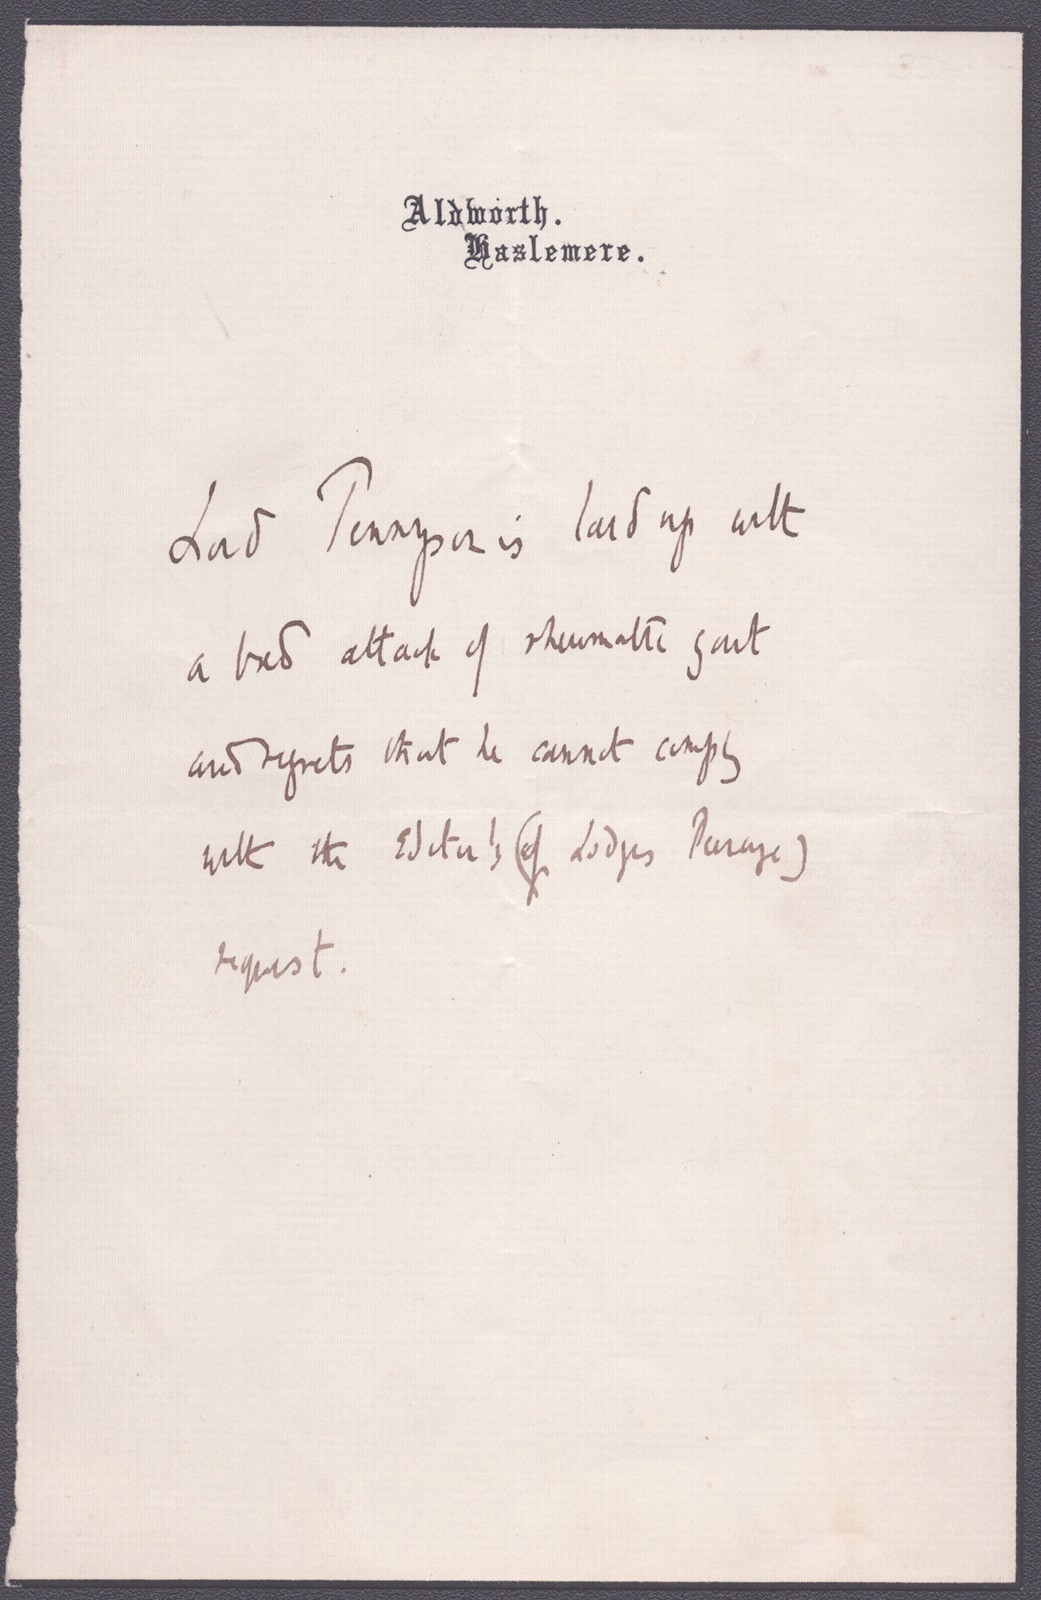 Aldworth.
Haslemere.
Lord Tennyson is laid up with
a bad attack of rheumatic gout
and regrets that he cannot comply
with the Editor's (of Lodges Peerage)
request.